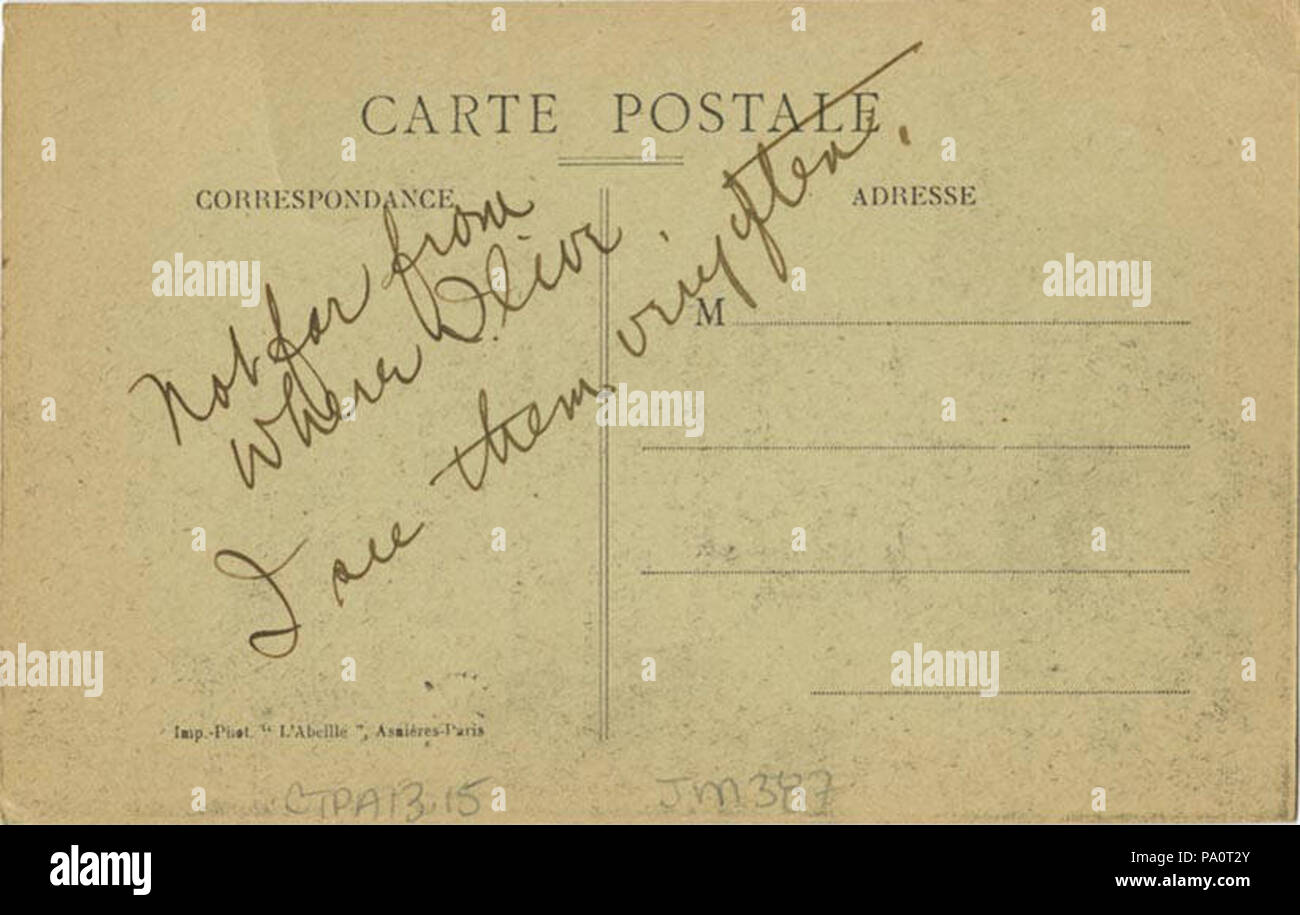 CARTE POSTALE
CORRESPONDANCE
ADRESSE
Not far from
where I live.
I see them very often.
M
Imp.-Phot. “ L'Abeille ”, Asnières-Paris
CTPA13.15
JM387
alamy
alamy
Image ID: PA0T2Y
www.alamy.com